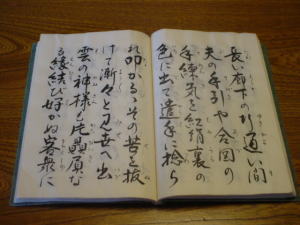 長い廊下の行通い間
夫の手引や合図の
手練気を紅絹裏の
色に出て遣手に捻ら
れ叩かるゝその苦を抜
けて漸々と見世へ出
雲の神様も片贔屓な
る縁結び好かぬ客衆に